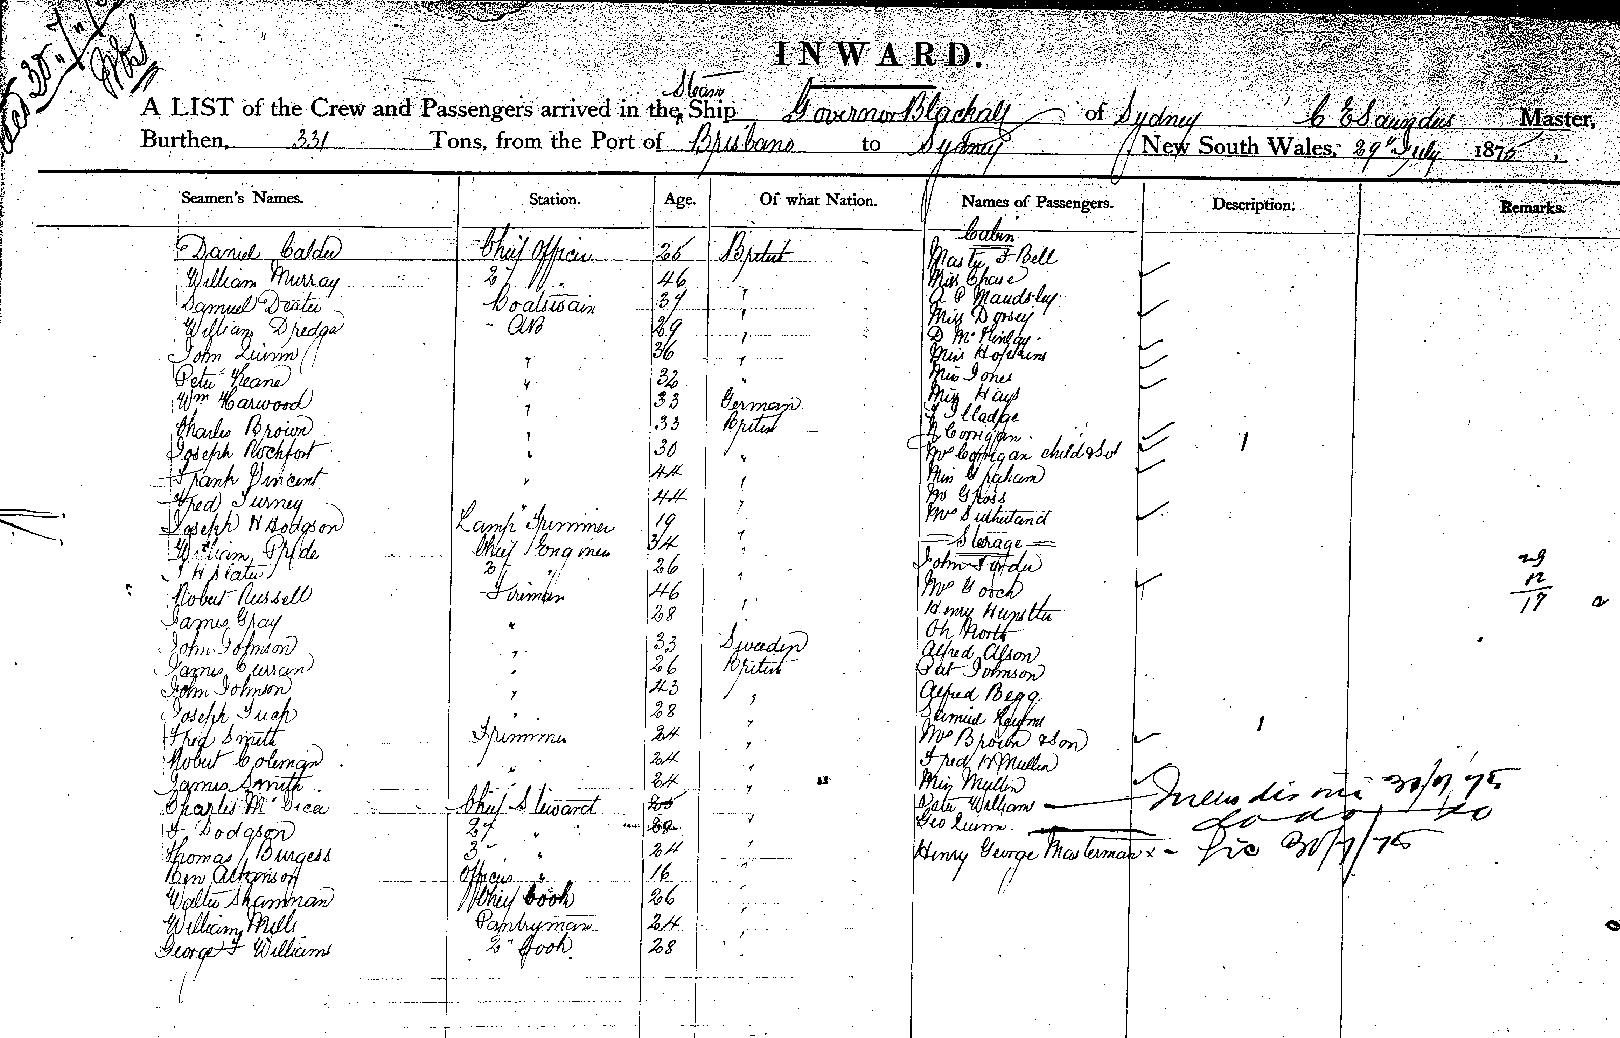 INWARD.
Steam
A LIST of the Crew and Passengers arrived in the Ship Governor Blackall of Sydney C E Saunders Master,
Burthen, 331 Tons, from the Port of Brisbane to Sydney New South Wales, 29 July 1875
Seamen's Names. Station. Age. Of what Nation. Names of Passengers. Description. Remarks.
Cabin
Daniel Calder Chief Officer 25 British Bell
William Murray 2 " 46 " Miss Chase
Samuel Dexter Boatswain 39 " Maudsley
William Dredge AB 29 " Miss Dorsey
John Quinn " 36 " D McKinlay
Miss Hopkins
Peter Keane " 32 " Miss Jones
Wm Harwood " 33 German Miss Hays
Charles Brown " 33 British Illadge
Corrigan
Joseph Rochfort " 30 " Mrs Corrigan child &
Frank Vincent " 44 " Miss Graham
Fred Turney " 44 " Mr Gross
Joseph H Hodgson Lamp Trimmer 19 " Mrs Sutherland
William Pride Chief Engineer 34 " Sterage
J H Slater 2 " 26 " John
Robert Russell Fireman 46 " Mrs Gooch
James Gray " 28 " Henry
Ch North
John Johnson " 33 Sweden Alfred Alson
James Curran " 26 British Pat Johnson
John Johnson " 43 " Alfred Begg
Joseph " 28 " Samuel
Fred Smith Trimmer 24 " Mrs Brown & Son
Robert Coleman " 24 " Fred H Mullin
James Smith " 24 " Miss Mullin
Charles Mc Chief Steward " William 30/7/75
J Dodgson 2 " " Geo Quinn do do do
Thomas Burgess 3 " 24 " Henry George Masterman x 30/7/75
Ben Atkinson Officers " 16 "
Walter Shannan Chief Cook 26 "
William Mills Pantryman 24 "
George F Williams 2 Cook 28 "
29
12
17